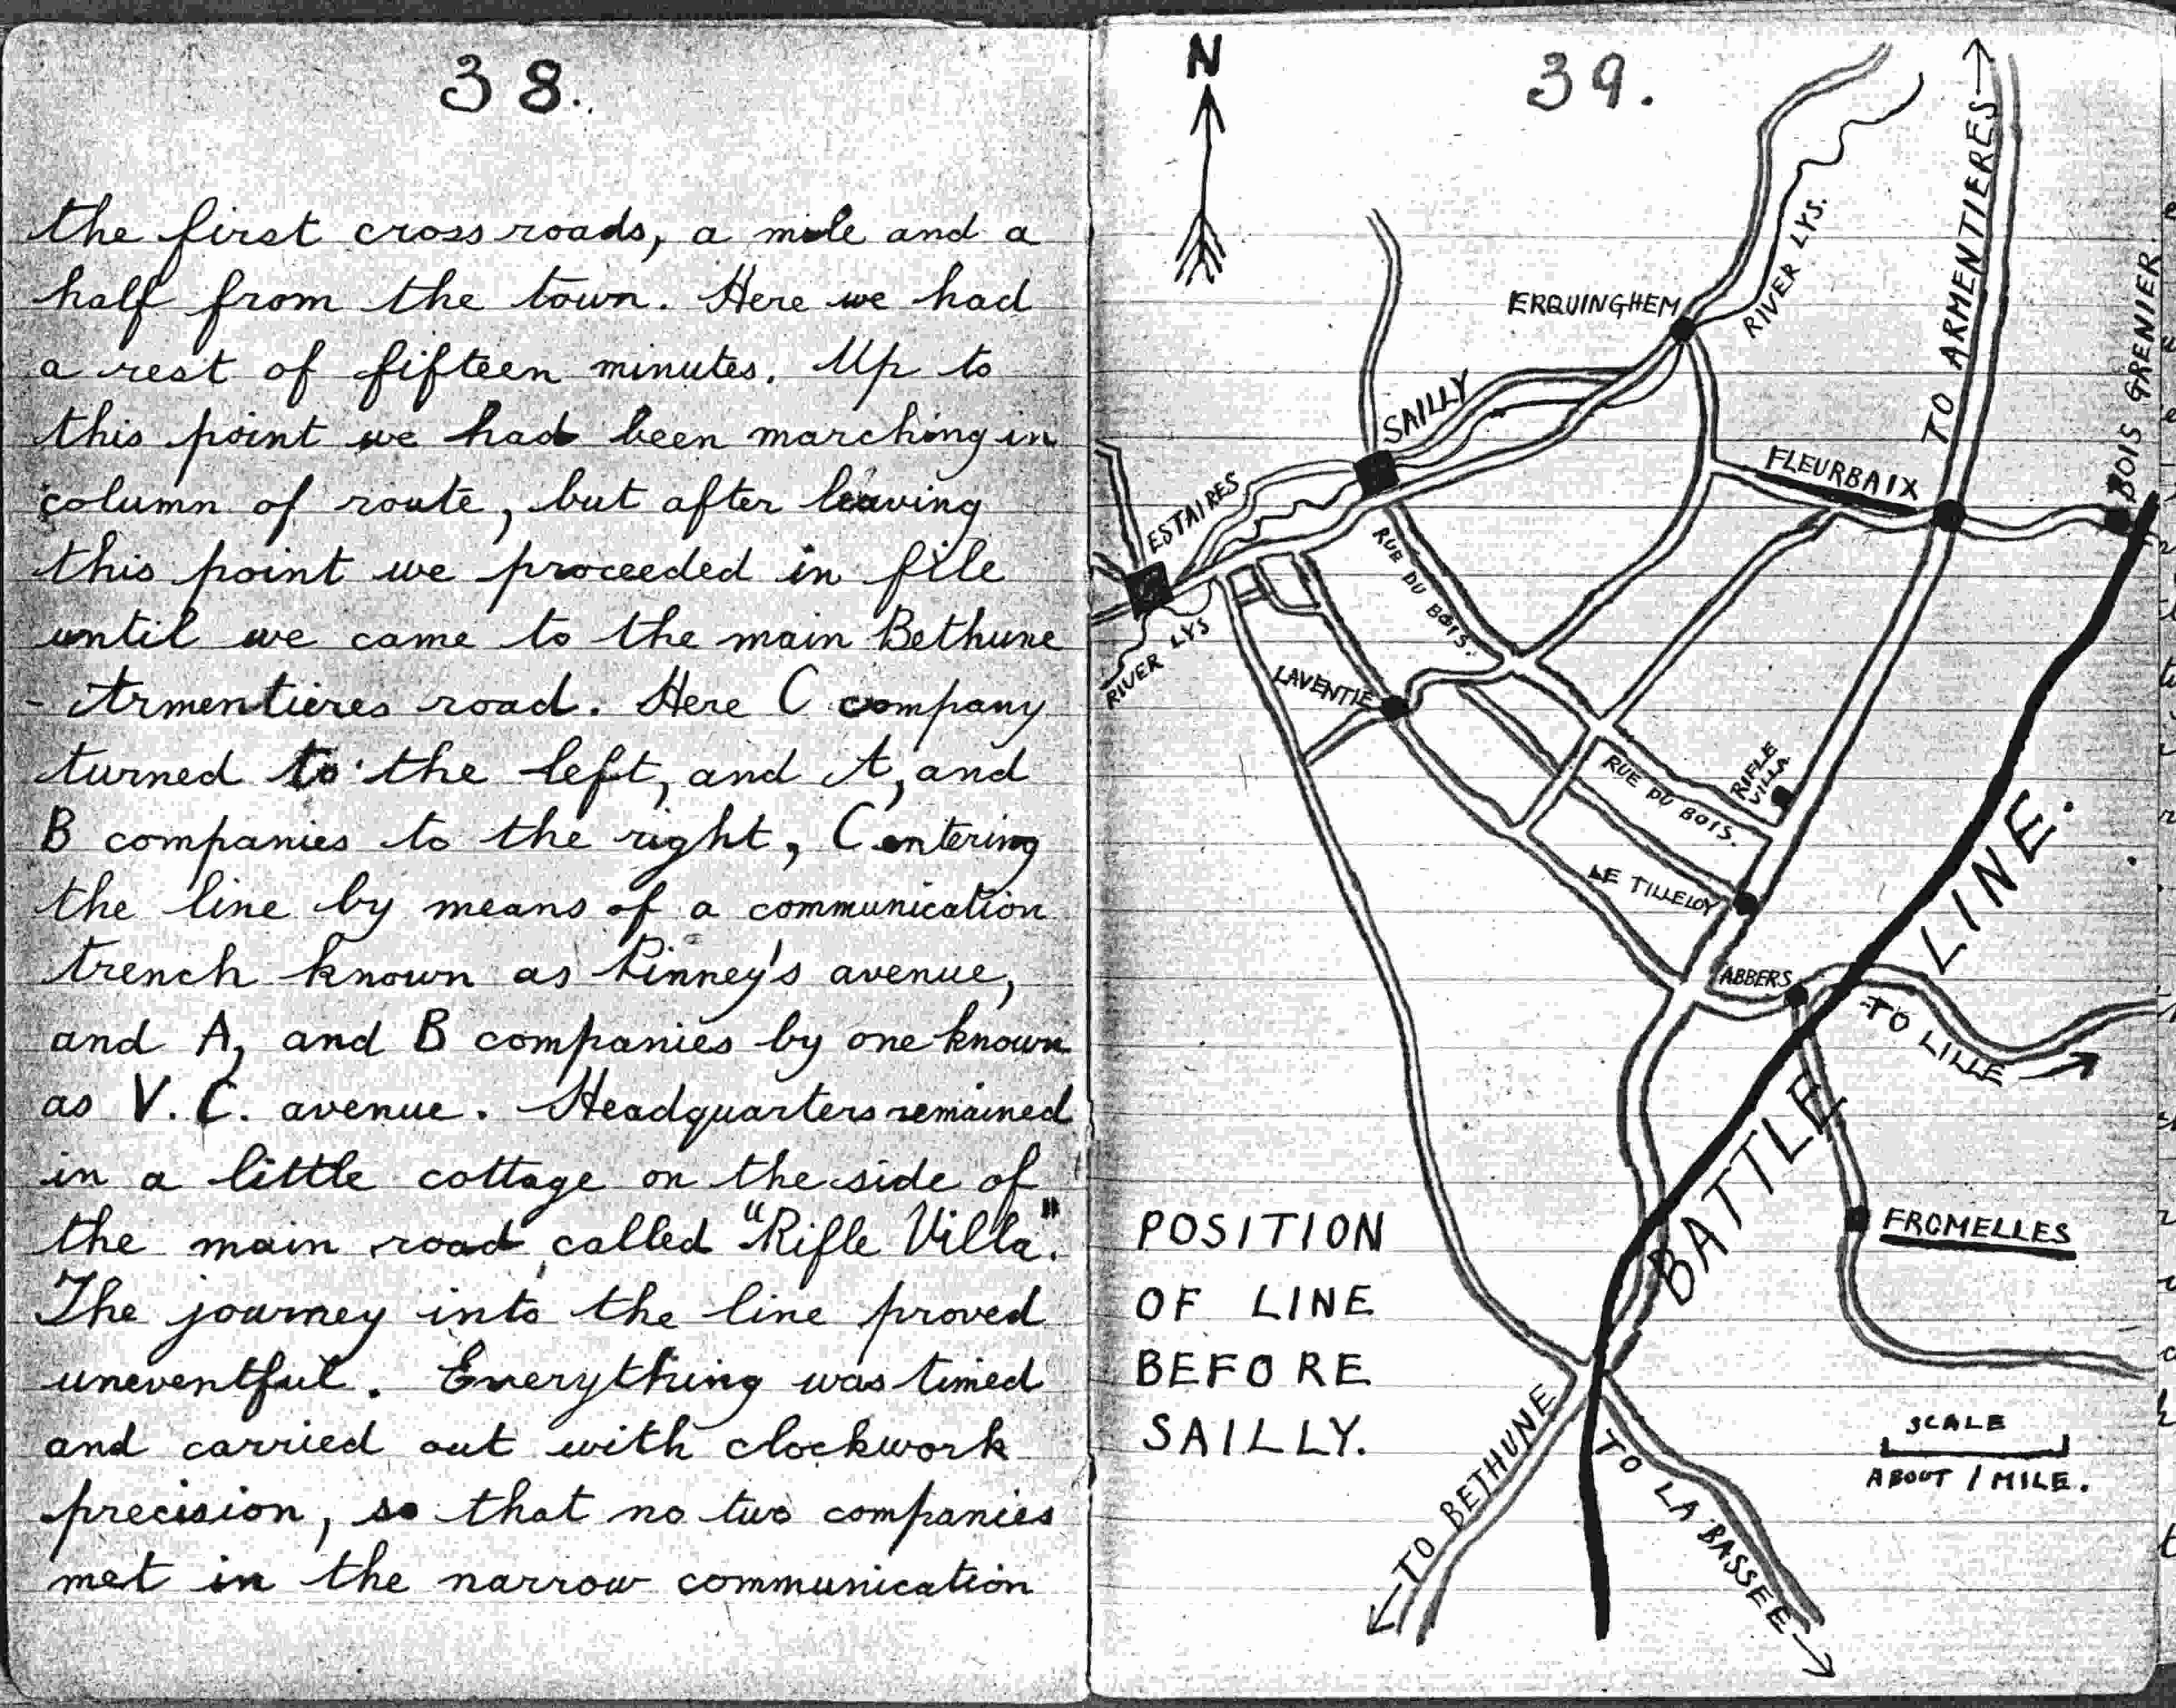 38.
the first cross roads, a mile and a
half from the town. Here we had
a rest of fifteen minutes. Up to
this point we had been marching in
column of route, but after leaving
this point we proceeded in file
until we came to the main Bethune
- Armentieres road. Here C company
turned to the left, and A, and
B companies to the right, C entering
the line by means of a communication
trench known as Pinney's avenue,
and A, and B companies by one known
as V.C. avenue. Headquarters remained
in a little cottage on the side of
the main road, called "Rifle Villa".
The journey into the line proved
uneventful. Everything was timed
and carried out with clockwork
precision, so that no two companies
met in the narrow communication
39.
N
TO ARMENTIERES
RIVER LYS.
ERQUINGHEM
BOIS GRENIER.
SAILLY
FLEURBAIX
ESTAIRES
RUE DU BOIS.
RIVER LYS
LAVENTIE
RIFLE
VILLA
RUE DU BOIS.
LE TILLELOY
ABBERS
TO LILLE
BATTLE LINE.
FROMELLES
POSITION
OF LINE
BEFORE
SAILLY.
TO BETHUNE
TO LA BASSEE
SCALE
ABOUT 1 MILE.